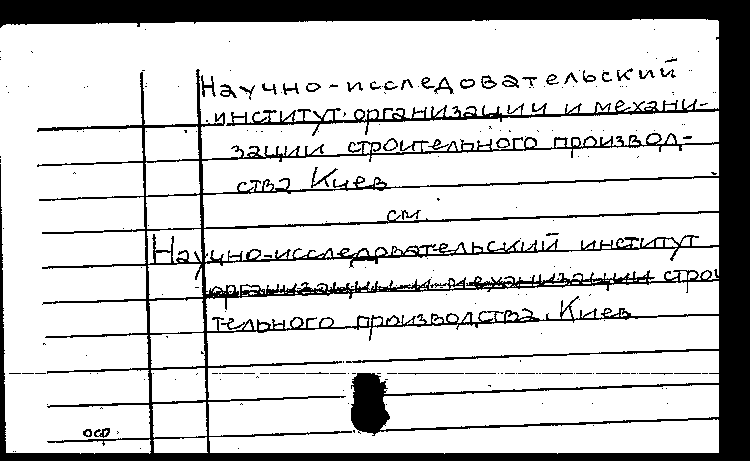 Научно-исследовательский
институт организации и механи-
зации строительного производ-
ства Киев
см.
Научно-исследовательский институт
организации и механизации строи
тельного производства. Киев
оср